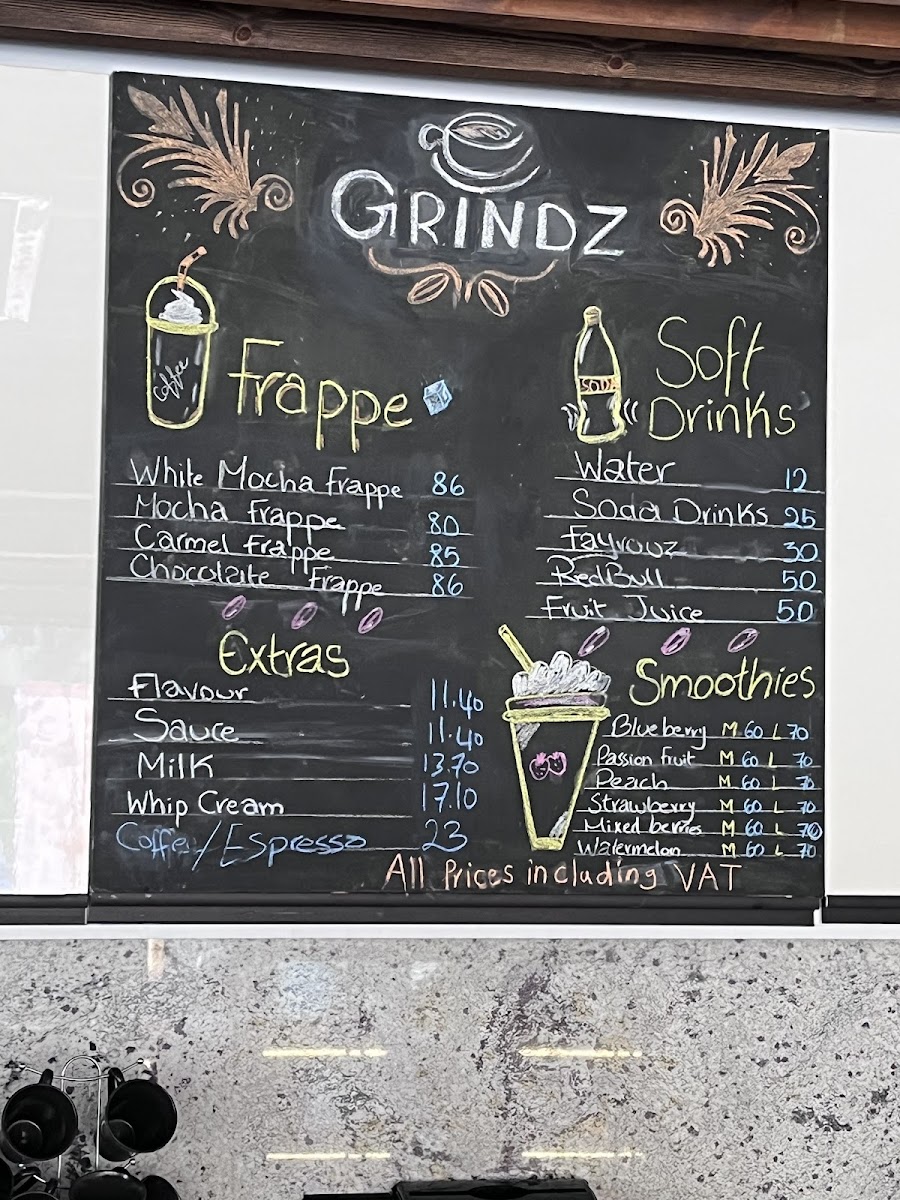 GRINDZ
coffee
Frappe
White Mocha Frappe 86
Mocha Frappe 80
Carmel Frappe 85
Chocolate Frappe 86
Extras
Flavour 11.40
Sauce 11.40
Milk 13.70
Whip Cream 17.10
Coffee/Espresso 23
SODA
Soft
Drinks
Water 12
Soda Drinks 25
Fayrouz 30
RedBull 50
Fruit Juice 50
Smoothies
Blueberry M 60 L 70
Passion fruit M 60 L 70
Peach M 60 L 70
Strawberry M 60 L 70
Mixed berries M 60 L 70
Watermelon M 60 L 70
All Prices including VAT